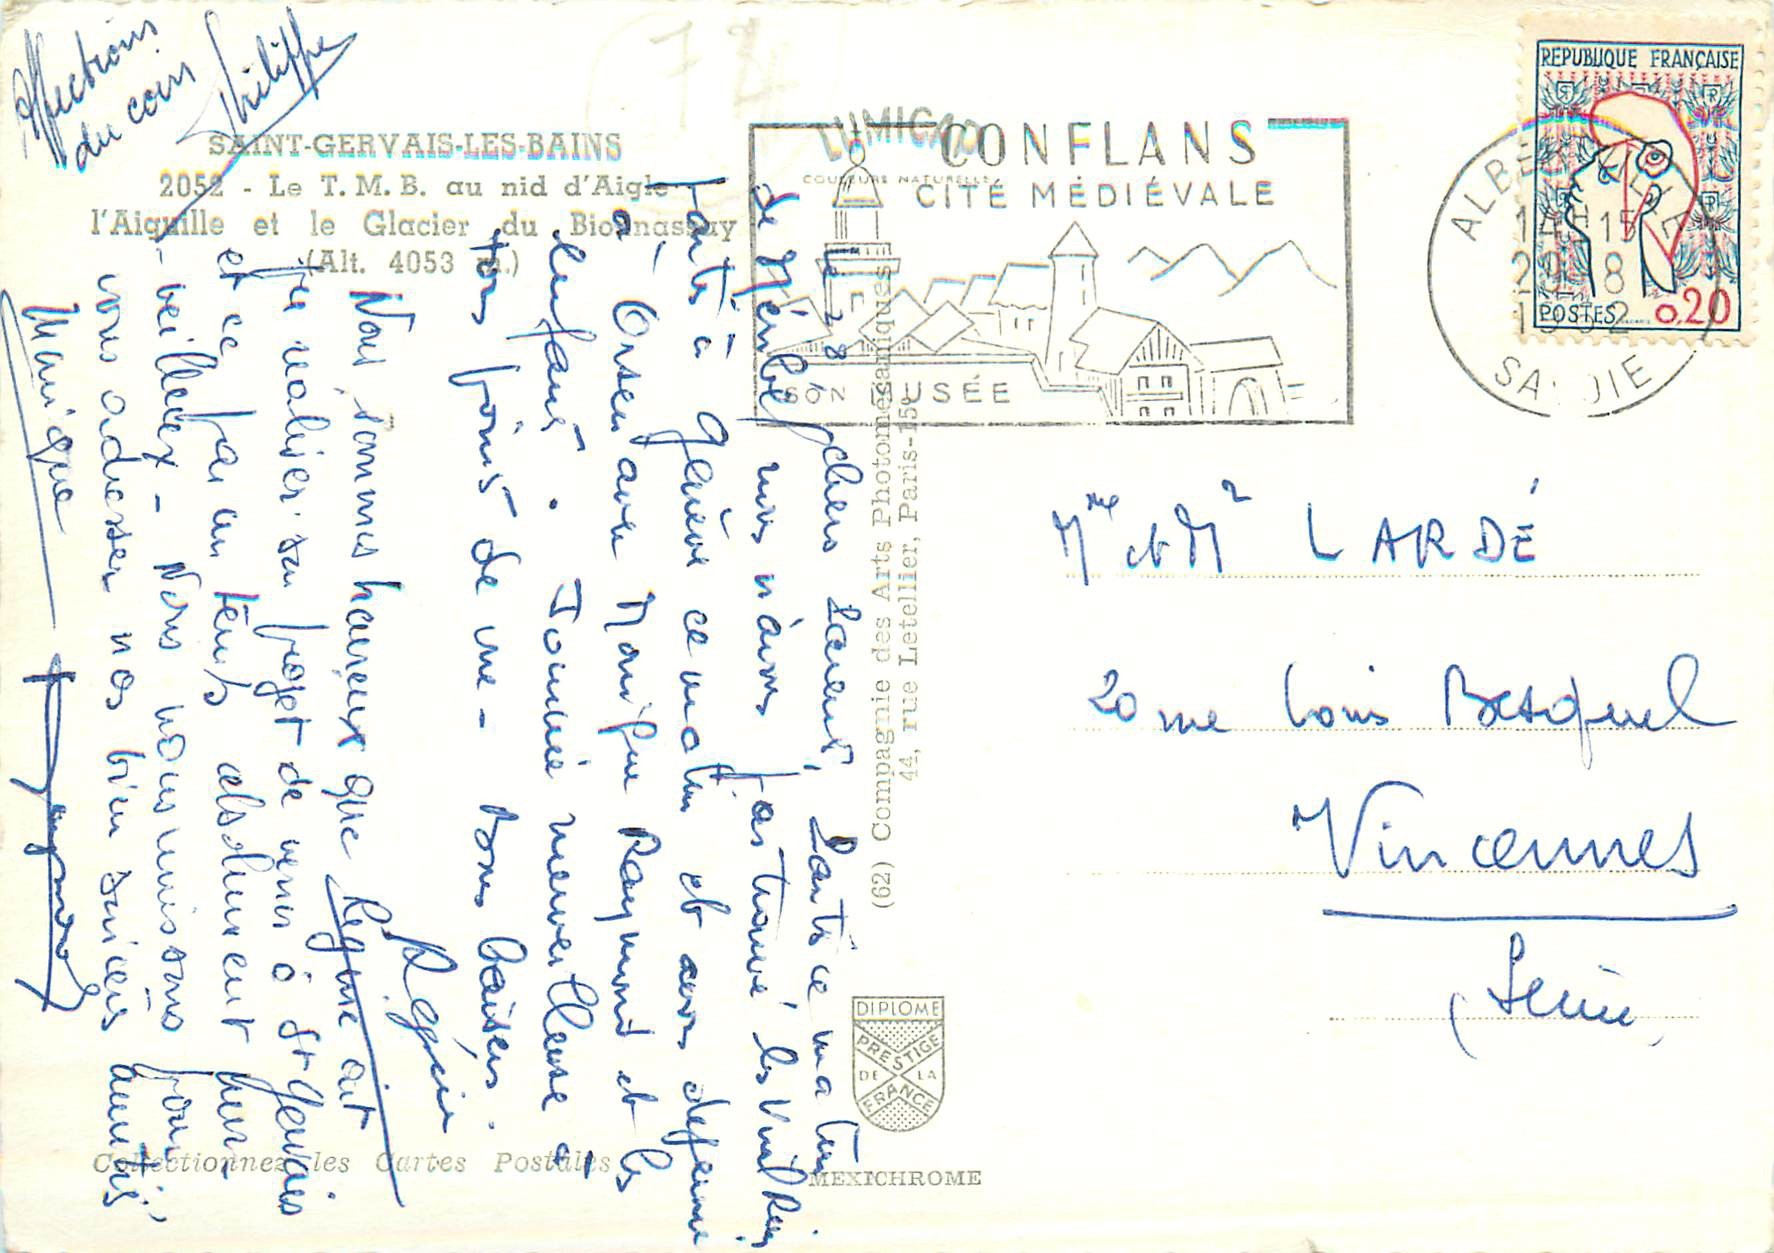 SAINT-GERVAIS-LES-BAINS
2052 - Le T. M. B. au nid d'Aigle
l'Aiguille et le Glacier du Bionnassay
(Alt. 4053 m.)
LUMICAP
COULEURS NATURELLES
CONFLANS
CITÉ MÉDIÉVALE
SON MUSÉE
ALBERTVILLE
14H15
29-8
1962
SAVOIE
REPUBLIQUE FRANÇAISE
POSTES
0,20
le 28
chers Parents, Partis ce matin
de Méribel nous n'avons pas trouvé les
partis à Genève ce matin et avons déjeuné
à Orsen avec Monique Raymond et les
enfants. Journée merveilleuse à
tous points de vue - Bons baisers.
Régine
Nous sommes heureux que Régine ait
pu réaliser son projet de venir à St Gervais
et ce par un temps absolument mer-
- veilleux - Nous nous unissons pour
vous adresser nos bien sincères amitiés
Monique
Raymond
Affections
du coin
Philippe
Me et Mr LARDÉ
20 rue Louis Besquel
Vincennes
(Seine)
(62) Compagnie des Arts Photomécaniques
44, rue Letellier, Paris-15e
DIPLOME
PRESTIGE
DE LA
FRANCE
Collectionnez les Cartes Postales
MEXICHROME